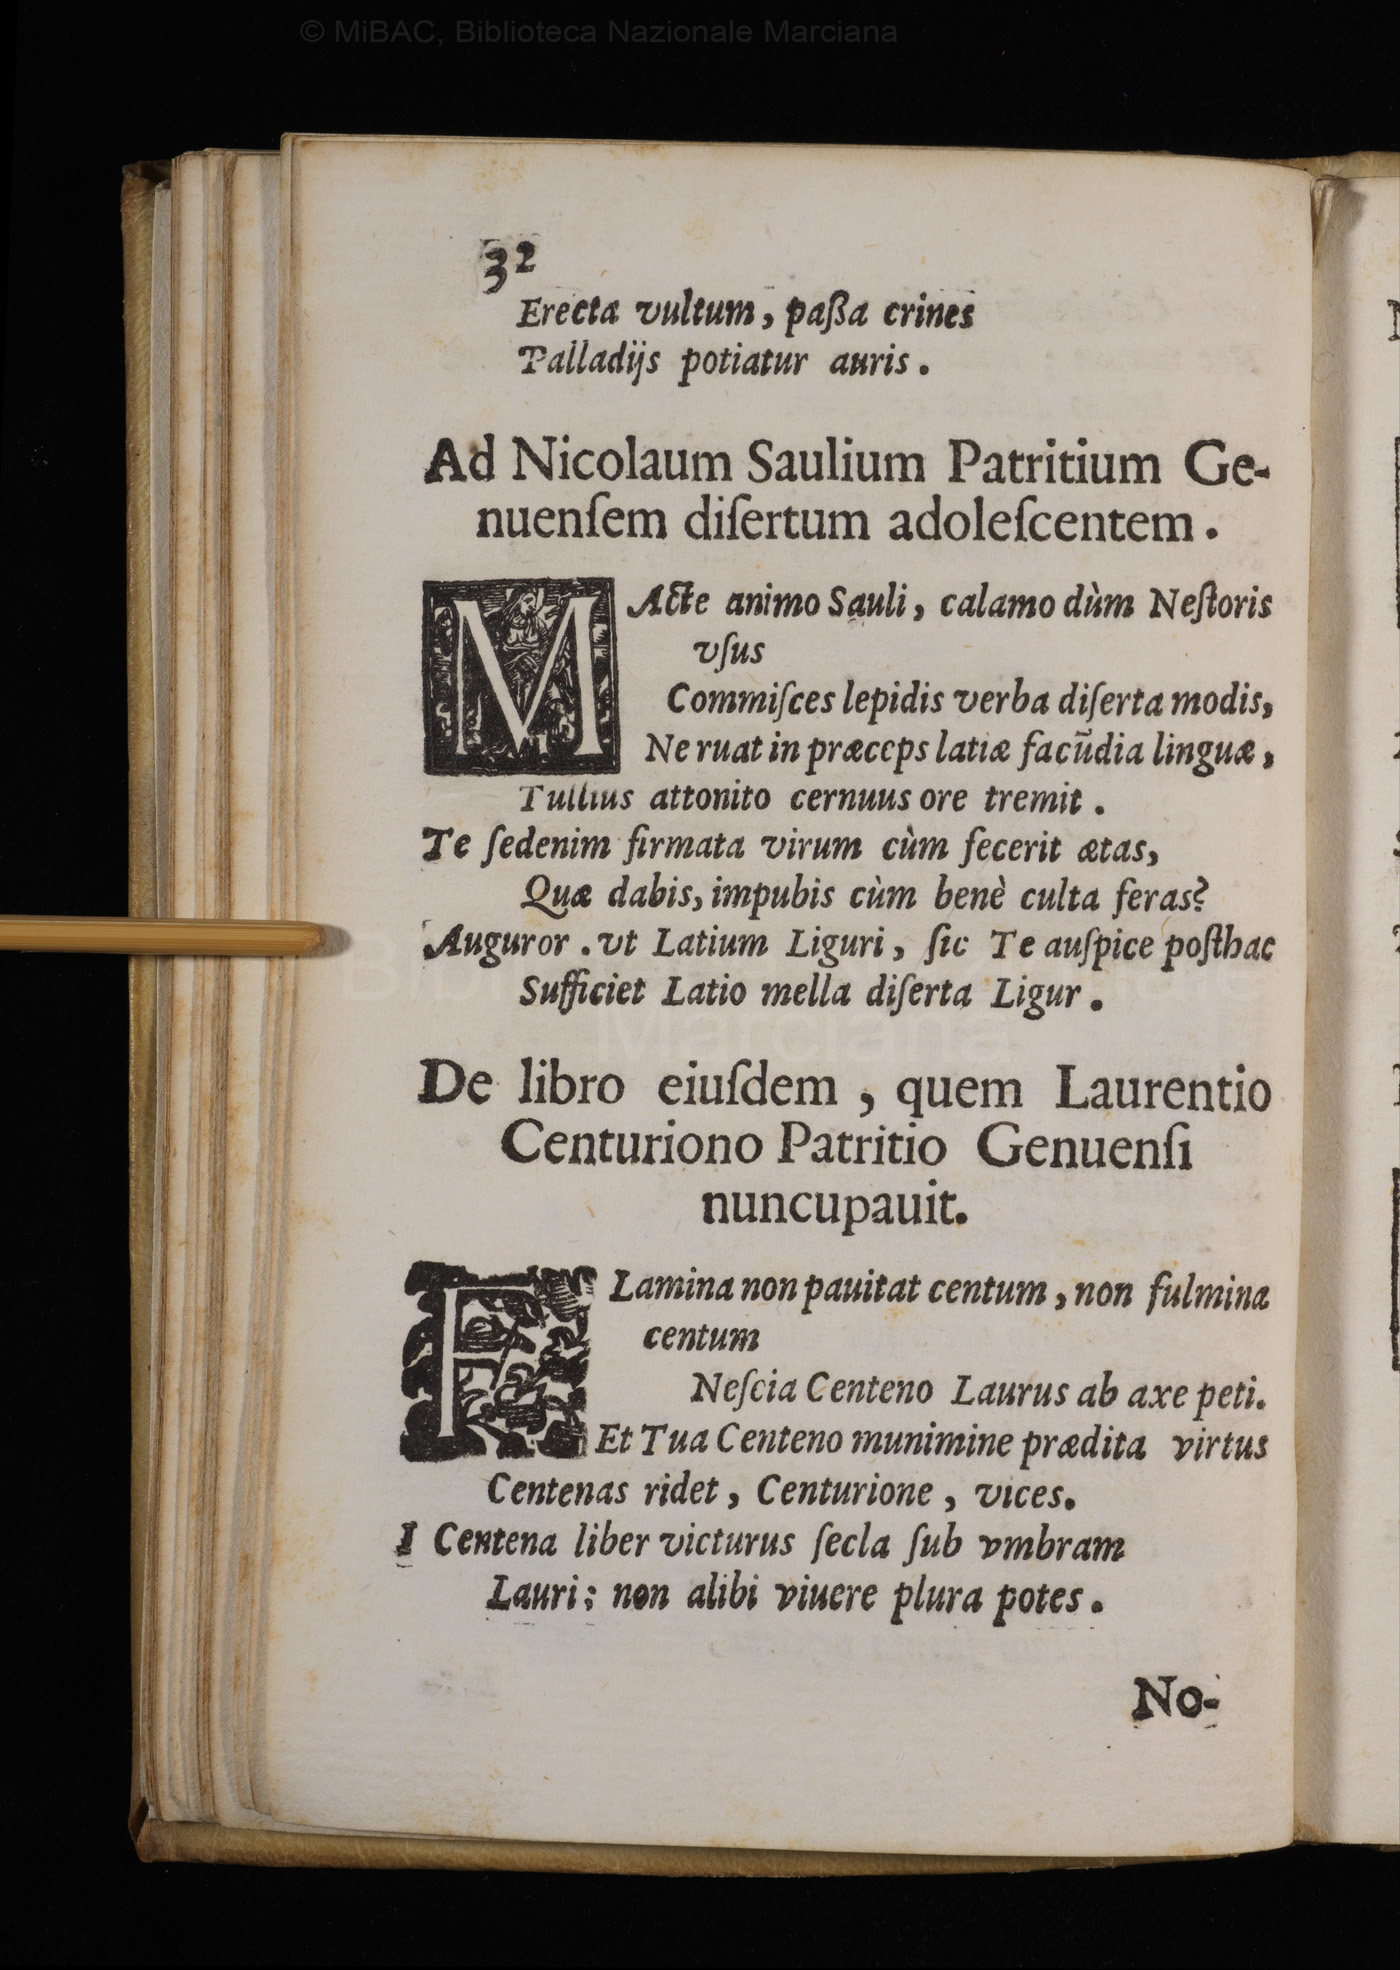 © MiBAC, Biblioteca Nazionale Marciana
32
Erecta vultum, paßa crines
Palladijs potiatur auris.
Ad Nicolaum Saulium Patritium Ge-
nuenſem diſertum adoleſcentem.
MActe animo Sauli, calamo dùm Neſtoris
vſus
Commiſces lepidis verba diſerta modis,
Ne ruat in præceps latiæ facũdia linguæ,
Tullius attonito cernuus ore tremit.
Te ſedenim firmata virum cùm fecerit ætas,
Quæ dabis, impubis cùm benè culta feras?
Auguror. vt Latium Liguri, ſic Te auſpice poſthac
Sufficiet Latio mella diſerta Ligur.
De libro eiuſdem, quem Laurentio
Centuriono Patritio Genuenſi
nuncupauit.
FLamina non pauitat centum, non fulmina
centum
Neſcia Centeno Laurus ab axe peti.
Et Tua Centeno munimine prædita virtus
Centenas ridet, Centurione, vices.
I Centena liber victurus ſecla ſub vmbram
Lauri: non alibi viuere plura potes.
No-